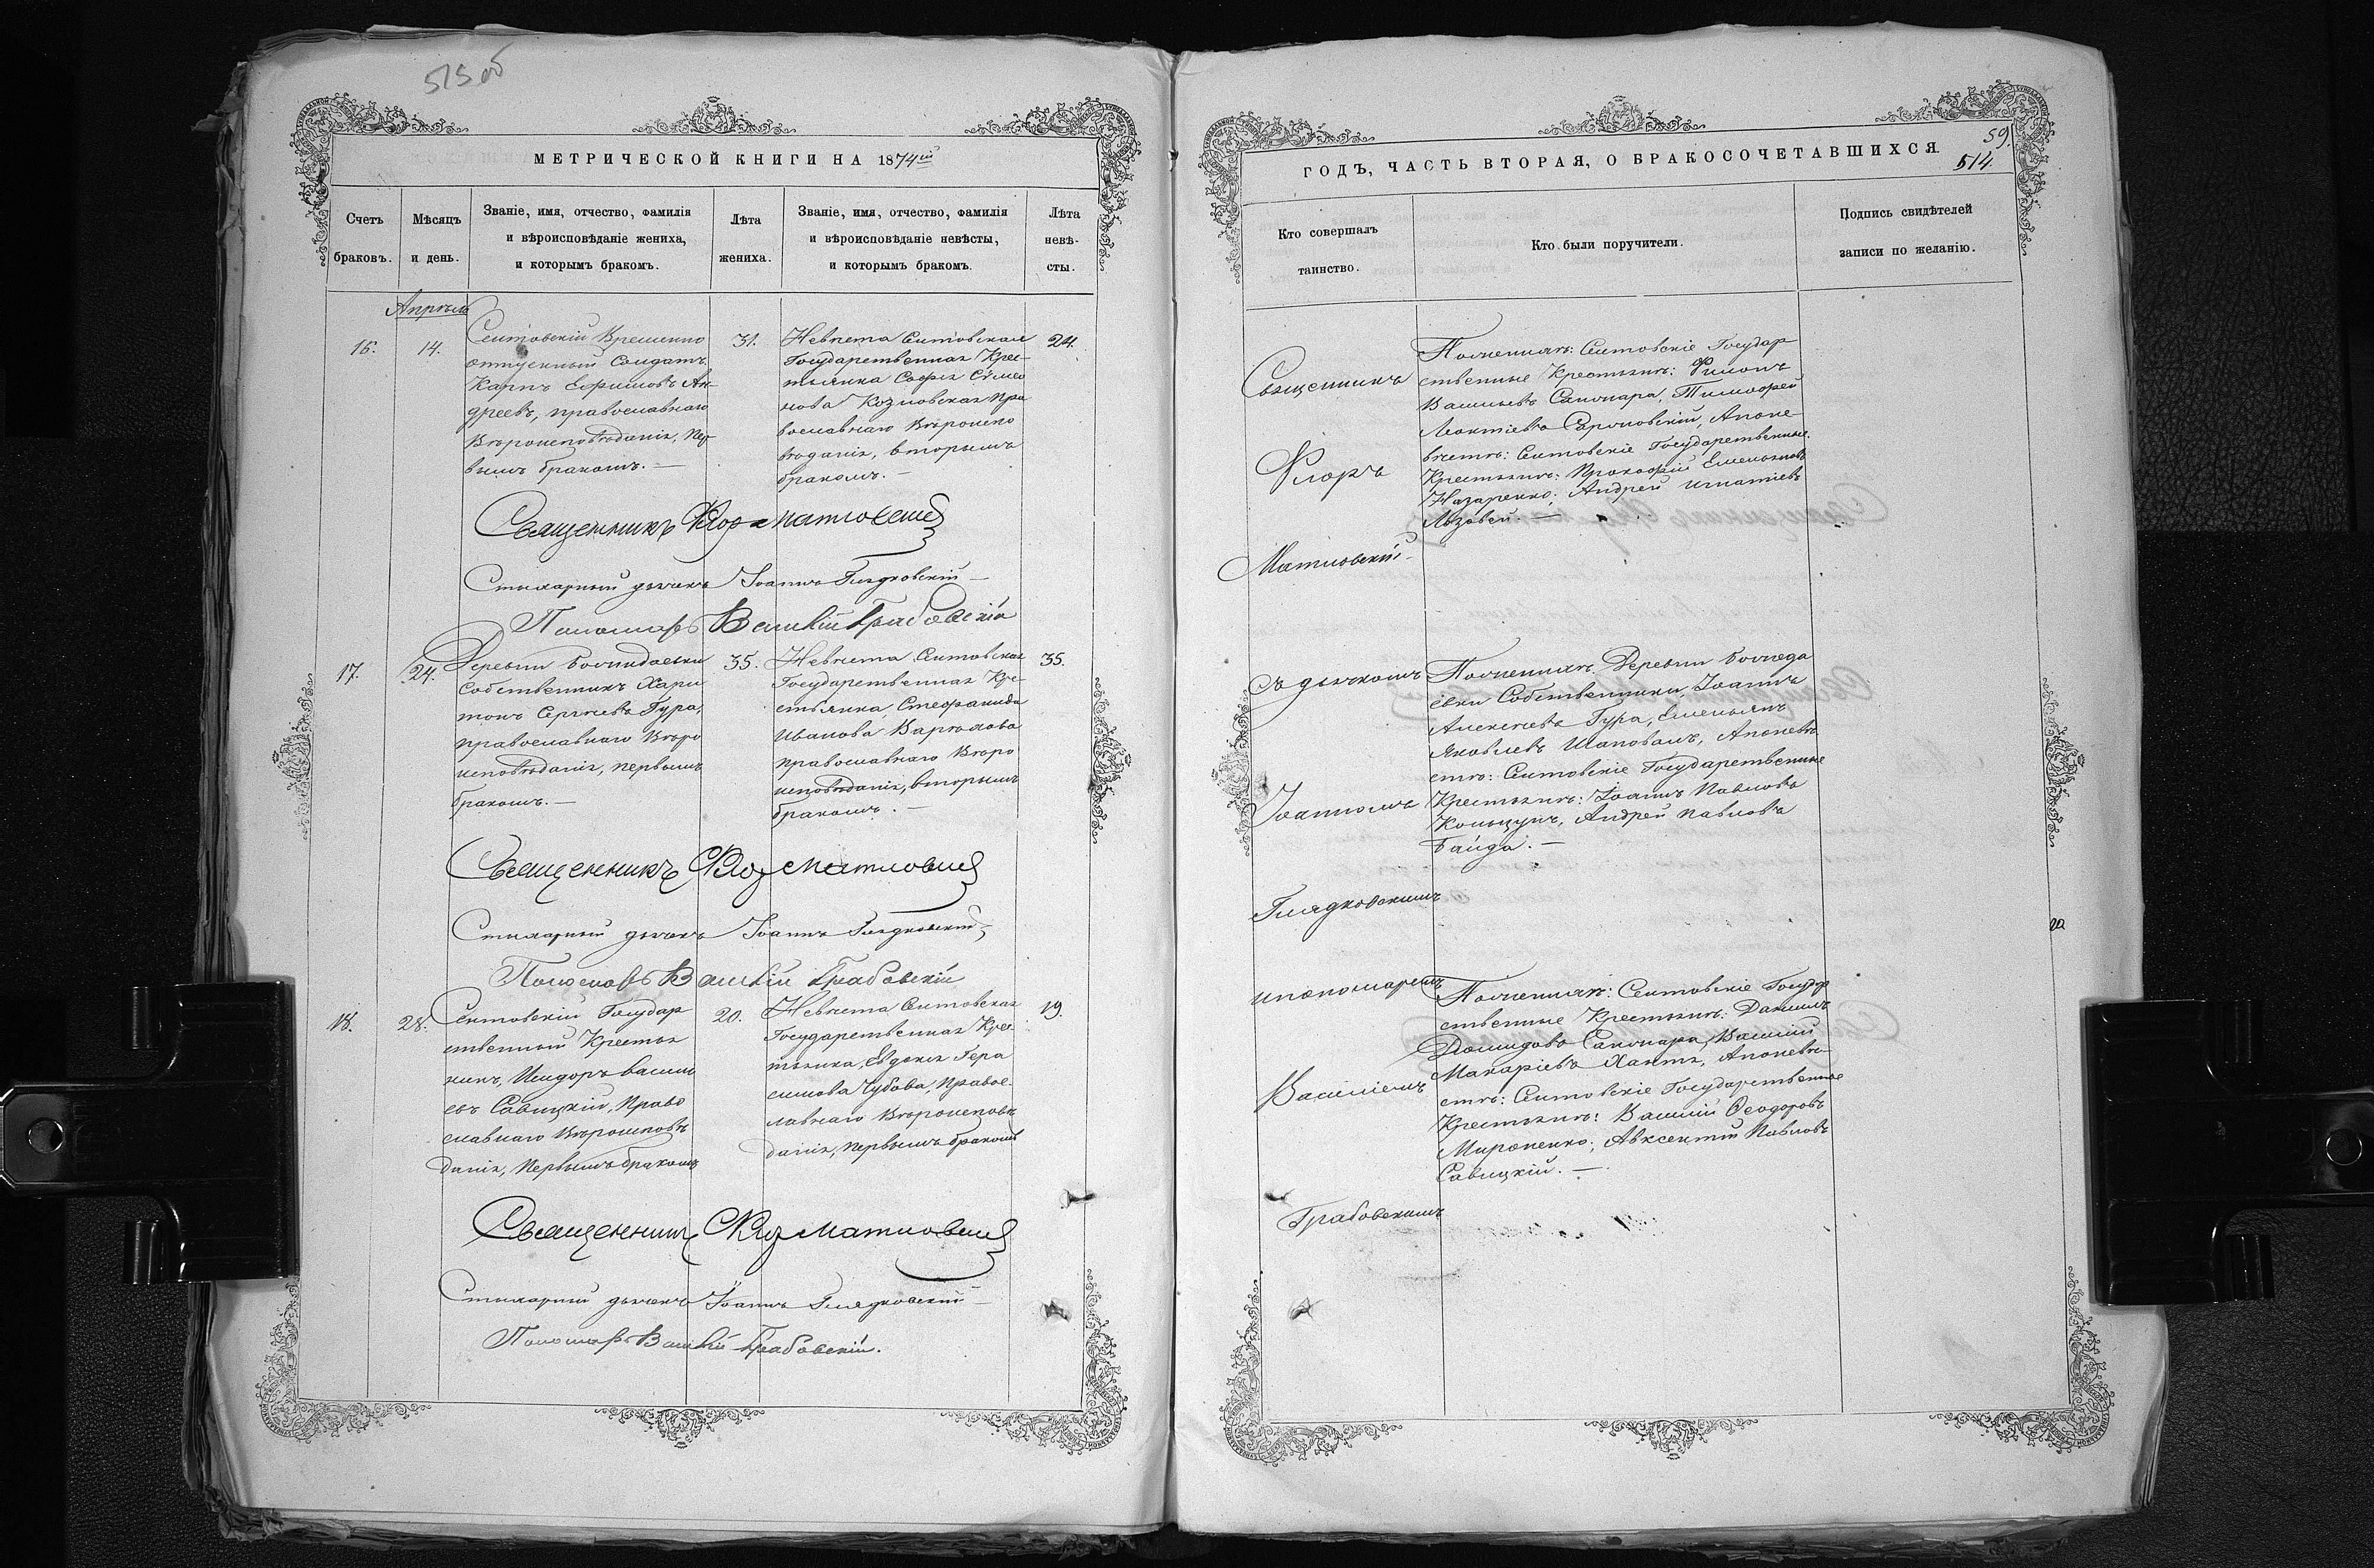 515 об
МЕТРИЧЕСКОЙ КНИГИ НА 1874ый
Счетъ
браковъ.
Мѣсяцъ
и день.
Званіе, имя, отчество, фамилія
и вѣроисповѣданіе жениха,
и которымъ бракомъ.
Лѣта
жениха.
Званіе, имя, отчество, фамилія
и вѣроисповѣданіе невѣсты,
и которымъ бракомъ.
Лѣта
невѣ-
сты.
Апрѣль
16.
14.
Сентовскій Временно
отпускный Солдатъ
Карпъ Ефимовъ Ан-
дреевъ, православнаго
Вѣроисповѣданія, Пер-
вымъ бракомъ. —
31.
Невѣста Сентовская
Государственная Крес-
тьянка Софія Симео
нова Козловская Пра
вославнаго Вѣроиспо
вѣданія, вторымъ
бракомъ. —
24.
Священникъ Флоръ Матловскій
Стихарный дьячекъ Іоаннъ Глядковскій —
Пономарь Василій Грабовскій
17.
24.
Деревни
Собственникъ Хари
тонъ Сергіевъ Гура,
православнаго Вѣро
исповѣданія, первымъ
бракомъ. —
35.
Невѣста Сентовская
Государственная Кре-
стьянка, Стефанида
Иванова Варѳакова
православнаго Вѣро
исповѣданія, вторымъ
бракомъ. —
35.
Священникъ Флоръ Матловскій
Стихарный дьячекъ Іоаннъ Глядковскій
Пономарь Василій Грабовскій
18.
28.
Сентовскій Государ
ственный Крестья
нинъ, Исидоръ Васил
евъ Савицкій, Право
славнаго Вѣроисповѣ
данія, Первымъ бракомъ
20.
Невѣста Сентовская
Государственная Крес
тьянка, Евдокія Гера
симова Чубова, Правос-
лавнаго Вѣроисповѣ
данія, Первымъ бракомъ
19.
Священникъ Флоръ Матловскій
Стихарный дьячекъ Іоаннъ Глядковскій —
Пономарь Василій Грабовскій.
59.
514.
ГОДЪ, ЧАСТЬ ВТОРАЯ, О БРАКОСОЧЕТАВШИХСЯ.
Кто совершалъ
таинство.
Кто были поручители.
Подпись свидѣтелей
записи по желанію.
Священникъ
Флоръ
Матловскій
съ дьячкомъ
Іоанномъ
Глядковскимъ
и пономаремъ
Василіемъ
Грабовскимъ
По женихѣ: Сентовскіе Государ
ственные Крестьяне: Филопъ
Васильевъ Саночара, Тимофей
Леонтіевъ, А по не
вѣстѣ: Сентовскіе Государственные
Крестьяне: Прокофій Емельяновъ
Назаренко; Андрей Игнатіевъ
Лозовей. —
По женихѣ Деревни
Собственники, Іоаннъ
Алексѣевъ Гура, Емельянъ
Яковлевъ Шаповалъ, А по невѣ
стѣ: Сентовскіе Государственные
Крестьяне: Іоаннъ Павловъ
Андрей Павловъ
Байда. —
По женихѣ: Сентовскіе Государ
ственные Крестьяне: Даніилъ
Демидовъ Саночара, Василій
Макаріевъ А по невѣ-
стѣ: Сентовскіе Государственные
Крестьяне: Василій Ѳеодоровъ
Мироненко; Авксентій Павловъ
Савицкій. —